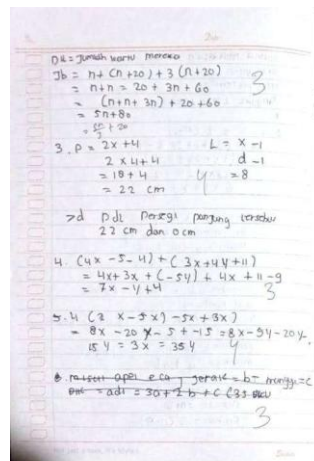 Dit = Jumlah kartu mereka
Jb = n + (n + 20) + 3 (n + 20)
= n + n = 20 + 3n + 60
= (n + n + 3n) + 20 + 60
= 5n + 80
3
3. P = 2x + 4 L = x - 1
2 x 4 + 4 d - 1
= 18 + 4 = 8
= 22 cm
4
>d Pdi Persegi panjang tersebut
22 cm dan 0 cm
4. (4x - 5 - 4) + (3x + 4y + 11)
= 4x + 3x + (-5y) + 4x + 11 - 9
= 7x - y + 4
3
5. 4 (2 x - 5x) - 5x + 3x)
= 8x - 20 x - 5 + -15 = 8x - 9y - 20y.
15 y = 3x = 35y
4
apel = a jeruk = b = mangga = c
= adi = 3a + 2b + c
3